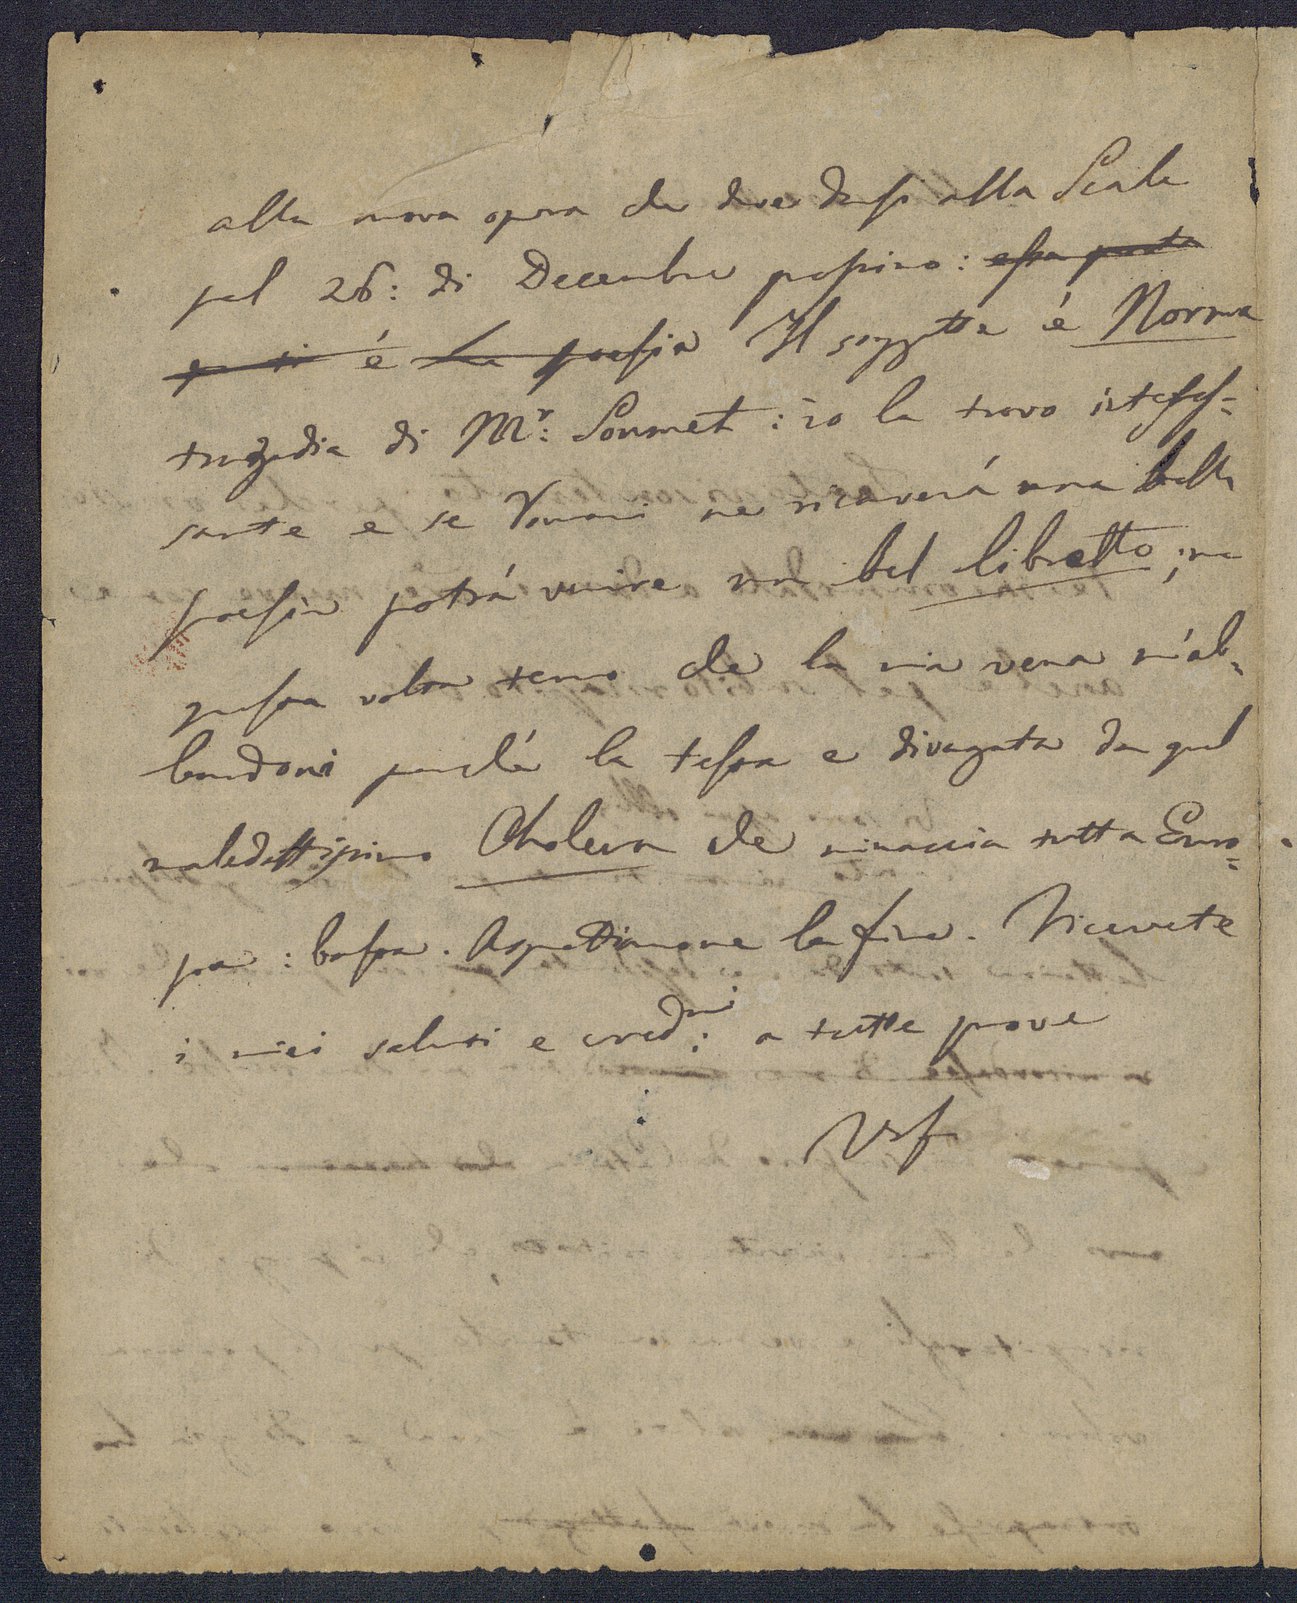 alla nova opera che deve darsi alla Scala
pel 26: di Decembre prossimo: essa
é La poesia Il soggetto é Norma
tragedia di Mr: Soumet: io la trovo interes=
sante e se Romani ne ricaverá una bella
poesia potrá venire un bel libretto; ma
questa volta temo che la mia vena m'ab=
bandoni perché la testa e divagata da quel
maledettissimo Cholera che minaccia tutta Euro=
pa: basta. Aspettiamone la fine. Ricevete
i miei saluti e cred:mi a tutte prove